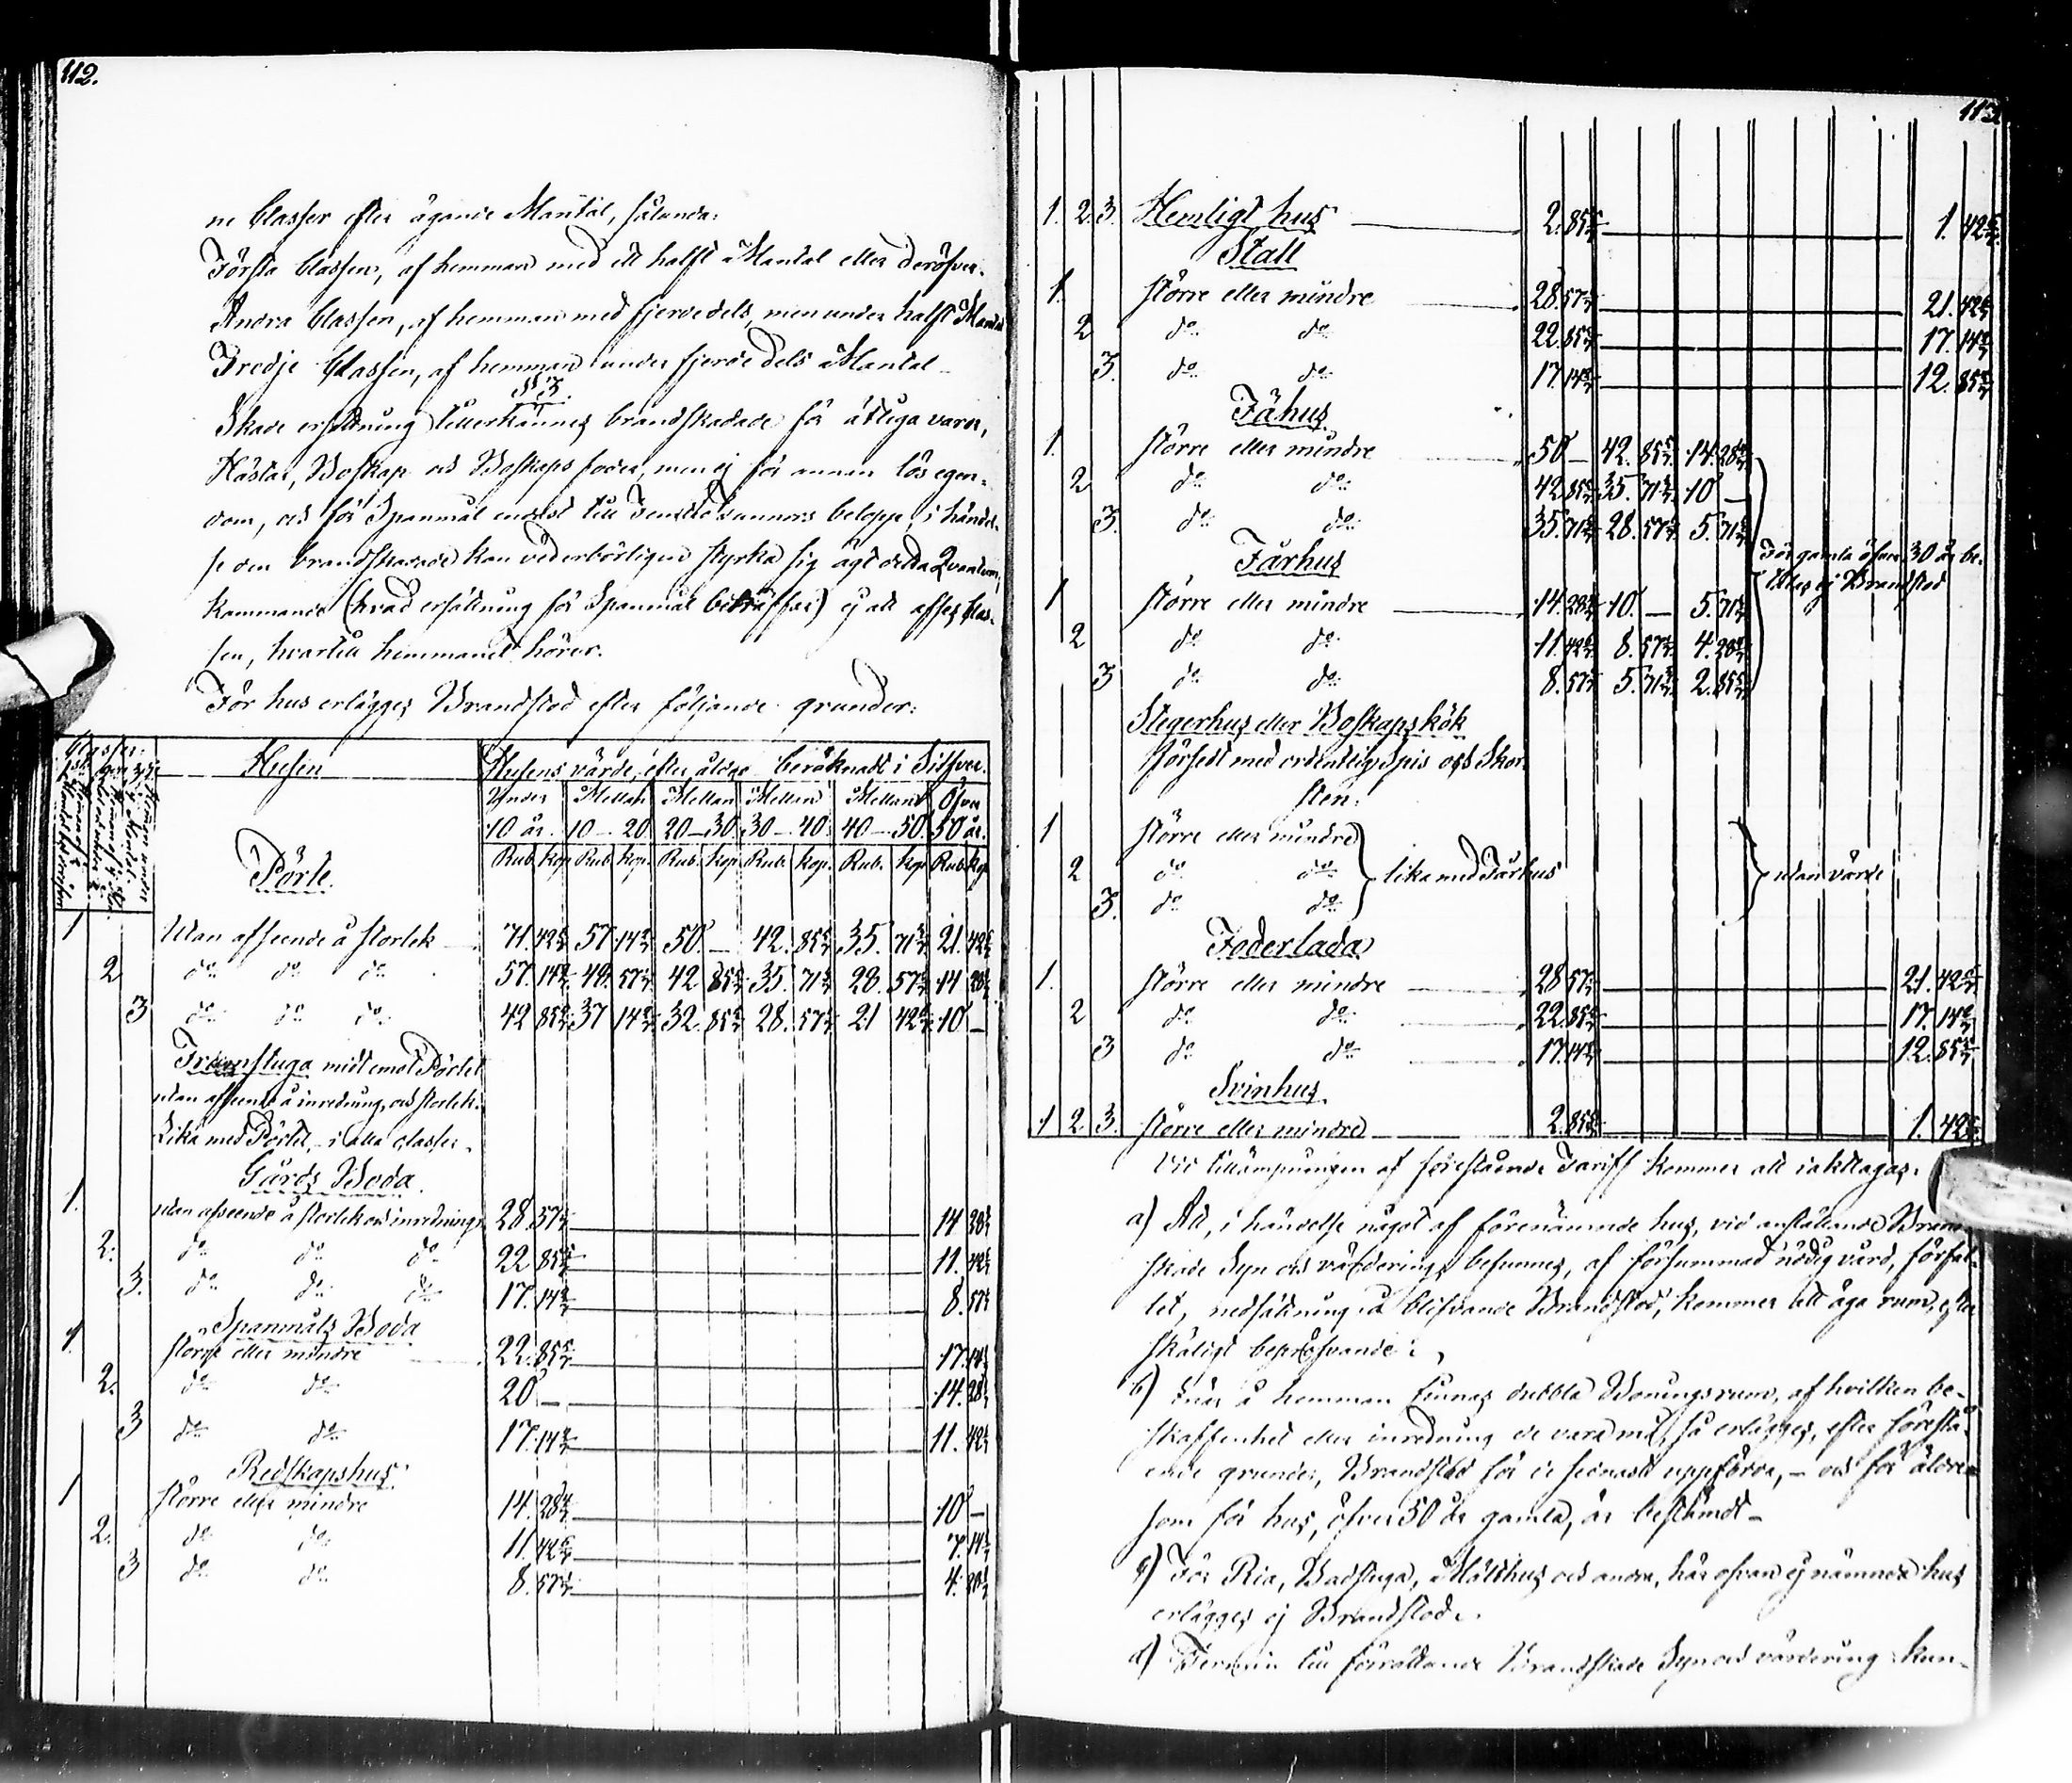 112.
ne Classer efter ägande Mantal, sålunda:
Första Classen, af hemman med ett halft Mantal eller deröfver.
Andra Classen, af hemman med fjerdedels, men under halft Mantal
Tredje Classen, af hemman under fjerdedels Mantal
§ 3.
Skade ersättning tillerkännes brandskadade för ätliga varor,
Hästar, Boskap och Boskaps foder, men ej för annan lös egen-
dom, och för Spanmål endast till tunnors belopp, i händel-
se den brandskadade kan vederbörligen styrka sig ägt detta Qvantum,
kommande (hvad ersättning för Spanmål beträffar) ej att afses Clas-
sen, hvartill hemmanet hörer.
För hus erlägges Brandstod efter följande grunder:
Classer. Husen Husens värde, efter ålder beräknadt i Silfver.
Under Mellan Mellan Mellan Mellan Öfver
10 år. 10 - 20 20 - 30. 30 - 40. 40 - 50. 50 år.
Rub. kop. Rub. kop. Rub. kop. Rub. kop. Rub. kop. Rub. kop.
Pörte.
1 Utan afseende å storlek 71. 42 6/7 57. 14 2/7 50. — 42. 85 5/7 35. 71 3/7 21. 42 6/7
2 do do do 57. 14 2/7 48. 57 1/7 42. 85 5/7 35. 71 3/7 28. 57 1/7 14. 28 4/7
3 do do do 42 85 5/7 37 14 2/7 32. 85 5/7 28. 57 1/7 21 42 6/7 10 —
Framstuga midt emot Pörtet
utan afseende å inredning, och storlek.
Lika med Pörtet, i alla classer.
Gårds Boda.
1. utan afseende å storlek och inredning 28. 57 1/7 14 28 4/7
2. do do do 22 85 5/7 11. 42 6/7
3. do do do 17. 14 2/7 8. 57 1/7
Spanmåls Boda
1. större eller mindre 22. 85 5/7 17. 14 2/7
2. do do 20 — 14. 28 4/7
3 do do 17. 14 2/7 11. 42 6/7
Redskapshus.
1 större eller mindre 14. 28 4/7 10 —
2. do do 11. 42 6/7 7. 14 2/7
3 do do 8. 57 1/7 4. 28 4/7
113.
1. 2. 3. Hemligt hus 2. 85 5/7 1. 42 6/7
Stall
1. större eller mindre 28. 57 1/7 21. 42 6/7
2 do do 22. 85 5/7 17. 14 2/7
3. do do 17. 14 2/7 12. 85 5/7
Fähus.
1. större eller mindre 50 — 42. 85 5/7 14. 28 4/7
2 do do 42. 85 5/7 35. 71 3/7 10 —
3. do do 35. 71 3/7 28. 57 1/7 5. 71 3/7
Fårhus
För gamla öfver 30 år be-
talas ej Brandstod
1 större eller mindre 14. 28 4/7 10. — 5. 71 3/7
2 do do 11. 42 6/7 8. 57 1/7 4. 28 4/7
3 do do 8. 57 1/7 5. 71 3/7 2. 85 5/7
Stegerhus eller Boskapskök
försedt med ordentlig Spis och Skor-
sten.
1 större eller mindre
2 do do lika med Fårhus utan värde
3. do do
Foderlada
1. större eller mindre 28 57 1/7 21. 42 6/7
2 do do 22. 85 5/7 17. 14 2/7
3 do do 17. 14 2/7 12. 85 5/7
Svinhus.
1 2 3. större eller mindre 2. 85 5/7 1. 42 6/7
Vid tillämpningen af förestående Tariff kommer att iakttagas:
a) At, i händelse något af förenämnde hus, vid anställande Brand-
skade Syn och värdering, befunnes, af försummad nödig vård, förfal-
let, nedsättning i blifvande Brandstod, kommer att äga rum, efter
skäligt bepröfvande.
b) Enär å hemman finnes dubbla Boningsrum, af hvilken be-
skaffenhet eller inredning de vara må, så erlägges, efter förestå-
ende grunder, Brandstod för de sednast uppförda, — och för äldre
som för hus, öfver 50 år gamla, är bestämdt —
c) För Ria, Badstuga, Mälthus och andra, här ofvan ej nämnda hus
erlägges ej Brandstod.
d) Termin till förrättande Brandskade Syn och värdering kun-